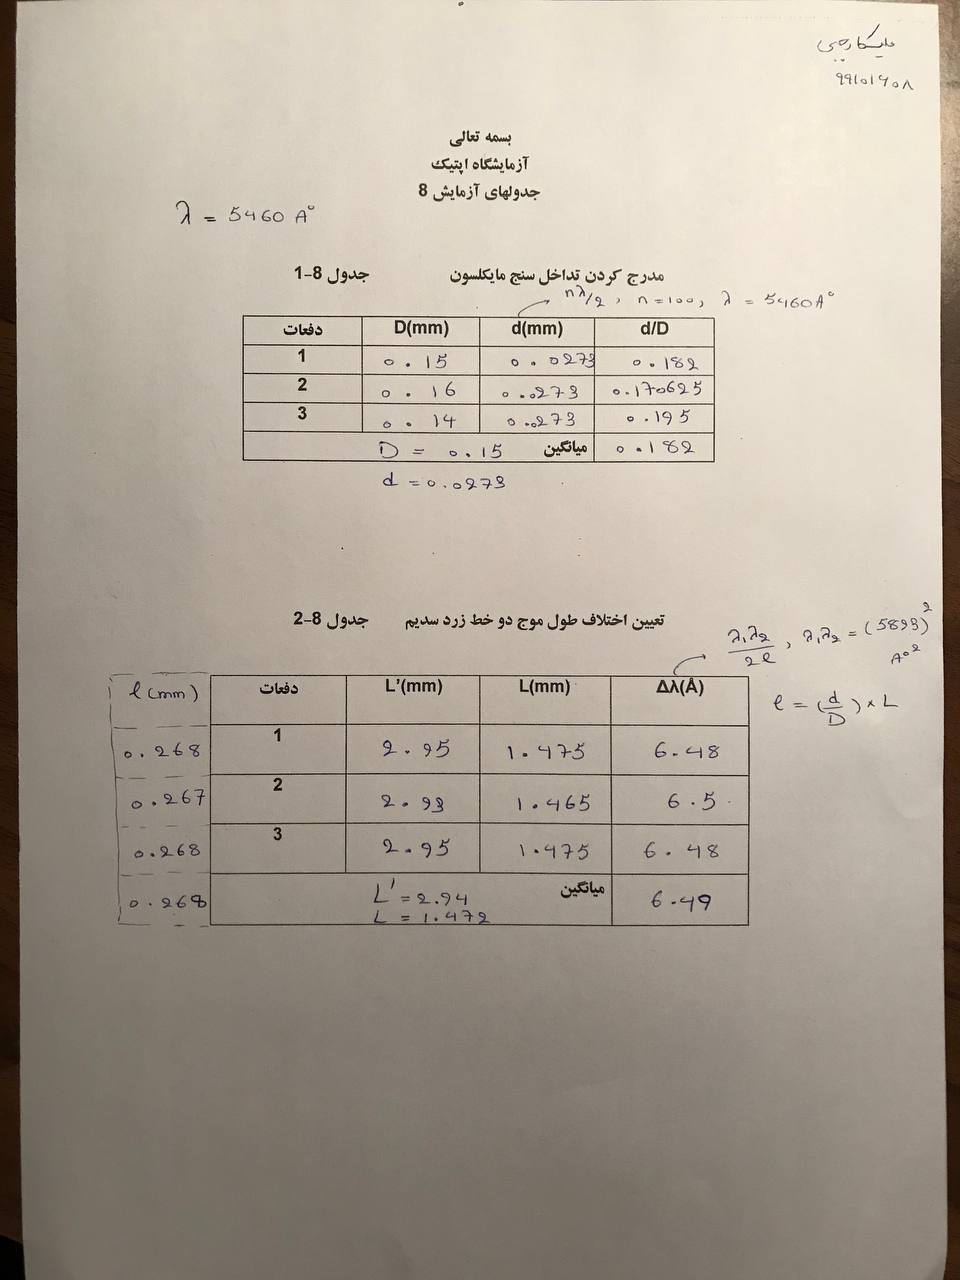 ملیکا رجبی
99101608
بسمه تعالی
آزمایشگاه اپتیک
جدولهای آزمایش 8
λ = 5460 A°
مدرج کردن تداخل سنج مایکلسون جدول 8-1
nλ/2 , n=100, λ = 5460A°
دفعات D(mm) d(mm) d/D
1 0.15 0.0273 0.182
2 0.16 0.0273 0.170625
3 0.14 0.0273 0.195
D = 0.15 میانگین 0.182
d = 0.0273
تعیین اختلاف طول موج دو خط زرد سدیم جدول 8-2
λ₁λ₂/2l , λ₁λ₂ = (5893)² A°²
l = (d/D) × L
l(mm) دفعات L'(mm) L(mm) Δλ(Å)
0.268 1 2.95 1.475 6.48
0.267 2 2.93 1.465 6.5
0.268 3 2.95 1.475 6.48
0.268 L' = 2.94 میانگین 6.49
L = 1.472